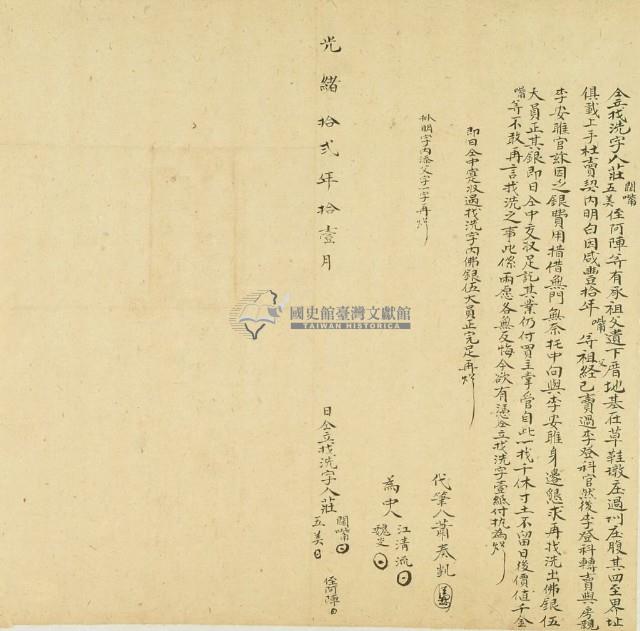 仝立找洗字人莊闊嘴五美侄阿陣等有承祖父遺下厝地基在草鞋墩庄過圳庄腹其四至界址
俱載上手杜賣契內明白因咸豊拾年嘴父等祖経已賣過李登科官然後李登科轉賣與房親
李安睢官玆因乏銀費用措借無門無奈托中向與李安睢身邊懇求再找洗出佛銀伍
大員正其銀即日仝中交收足訖其業仍付買主掌管自此一找千休寸土不留日後價值千金
嘴等不敢再言找洗之事此係兩愿各無反悔今欲有憑仝立找洗字壹紙付执為炤
即日仝中寔收過找洗字內佛銀伍大員正完足再炤
批明字內添父字一字再炤
代筆人蕭奏凯
為中人江清流
魏
光緒拾弍年拾壹月
日仝立找洗字人莊闊嘴
五美
侄阿陣
國史館臺灣文獻館
TAIWAN HISTORICA